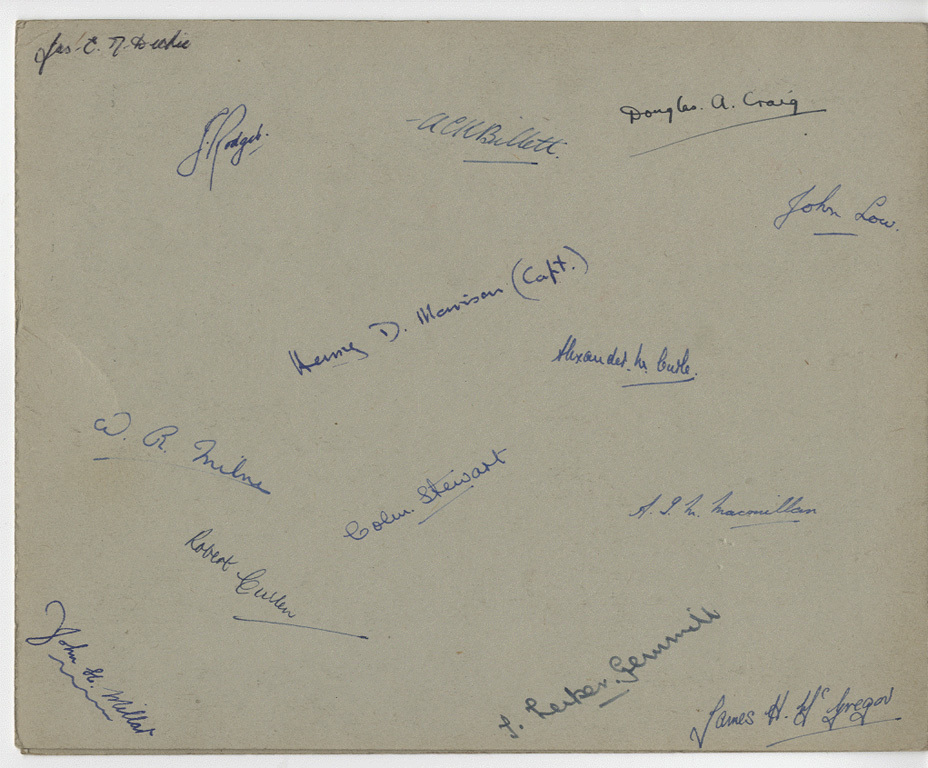 Jas. C. N. Dechie
J. Rodger.
A C W Billett.
Douglas. A. Craig
John Low.
Henry D. Morrison (Capt.)
Alexander. M. Curle.
W. R. Milne
Colin. Stewart
A. I. M. Macmillan
Robert Cullen
John H. Millar
J. Gemmill
James H. Mc Gregor